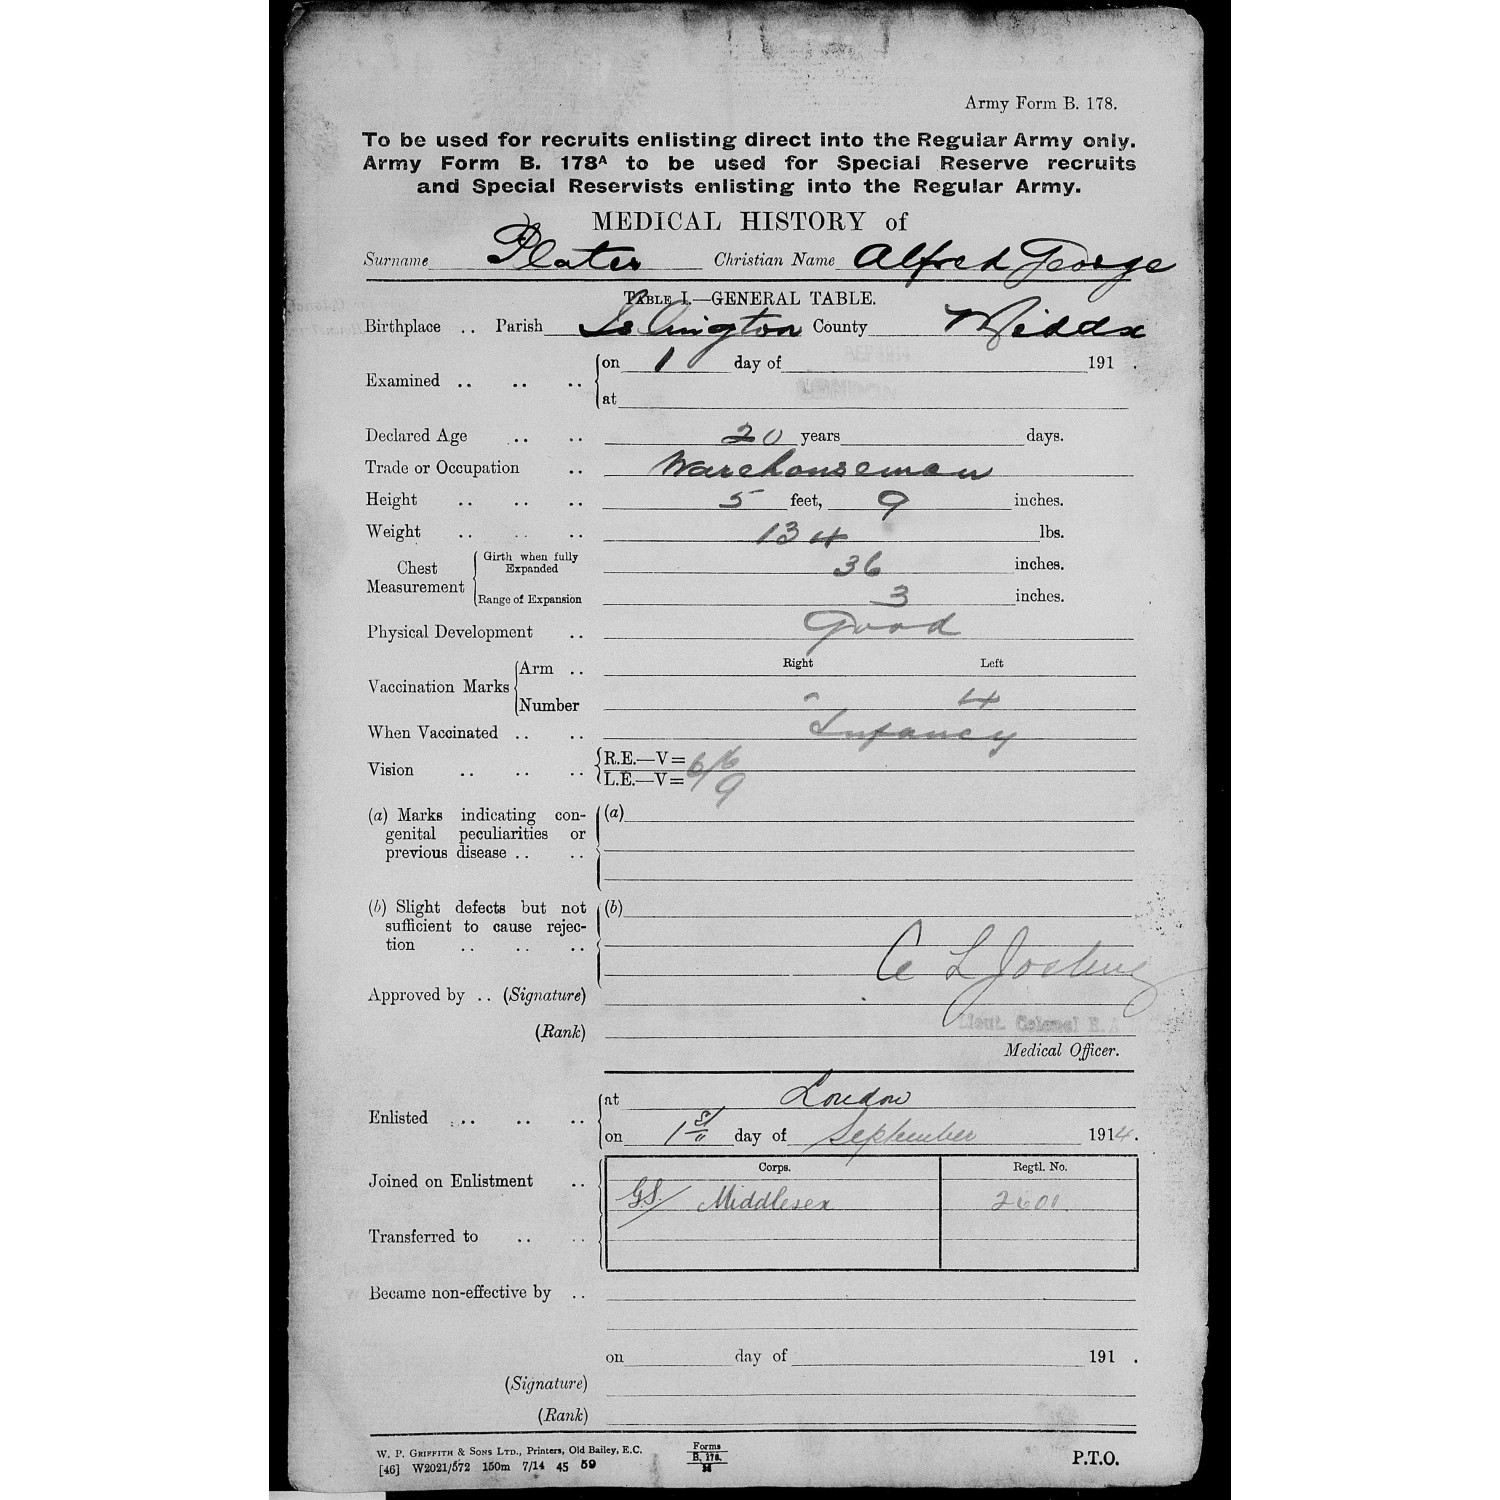 Army Form B. 178.
To be used for recruits enlisting direct into the Regular Army only.
Army Form B. 178A to be used for Special Reserve recruits
and Special Reservists enlisting into the Regular Army.
MEDICAL HISTORY of
Surname Plater Christian Name Alfred George
TABLE I.—GENERAL TABLE.
Birthplace .. Parish Islington County Middx
Examined .. .. .. on 1 day of 191 .
at
Declared Age .. .. 20 years days.
Trade or Occupation .. Warehouseman
Height .. .. .. 5 feet, 9 inches.
Weight .. .. .. 134 lbs.
Chest Measurement Girth when fully Expanded 36 inches.
Range of Expansion 3 inches.
Physical Development .. Good
Right Left
Vaccination Marks Arm ..
Number 4
When Vaccinated .. .. Infancy
Vision .. .. .. R.E.—V= 6/6
L.E.—V= 6/9
(a) Marks indicating con- (a)
genital peculiarities or
previous disease .. ..
(b) Slight defects but not (b)
sufficient to cause rejec-
tion .. .. ..
Approved by .. (Signature) L
(Rank) Lieut. Colonel R.A
Medical Officer.
Enlisted .. .. .. at London
on 1st day of September 1914.
Corps. Regtl. No.
Joined on Enlistment .. GS/ Middlesex 2601
Transferred to .. ..
Became non-effective by ..
on day of 191 .
(Signature)
(Rank)
W. P. GRIFFITH & SONS LTD., Printers, Old Bailey, E.C.
[46] W2021/572 150m 7/14 45 59
Forms
B. 178.
P.T.O.